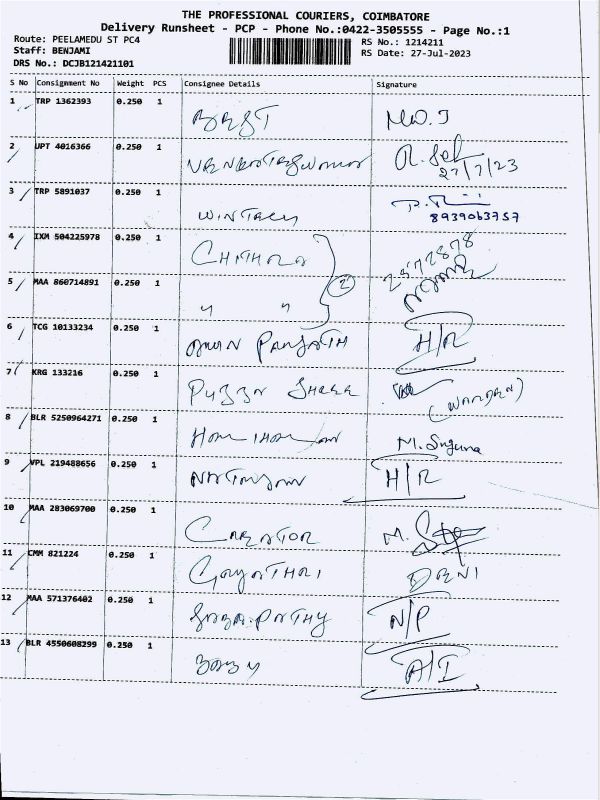 THE PROFESSIONAL COURIERS, COIMBATORE
Delivery Runsheet - PCP - Phone No.:0422-3505555 - Page No.:1
Route: PEELAMEDU ST PC4
RS No.: 1214211
Staff: BENJAMI
RS Date: 27-Jul-2023
DRS No.: DCJB121421101
S No Consignment No Weight PCS Consignee Details Signature
1 TRP 1362393 0.250 1 BEST
2 UPT 4016366 0.250 1 27/7/23
3 TRP 5891037 0.250 1 8939063757
4 IXM 504225978 0.250 1 CHITHRA 2572878
5 MAA 860714891 0.250 1 " " 2
6 TCG 10133234 0.250 1 H/R
7 KRG 133216 0.250 1 (WARDEN)
8 BLR 5250964271 0.250 1 M. Suguna
9 VPL 219488656 0.250 1 H/R
10 MAA 283069700 0.250 1 CREATOR M.
11 CMM 821224 0.250 1 GAYATHRI
12 MAA 571376402 0.250 1 N/P
13 BLR 4550608299 0.250 1 A/I